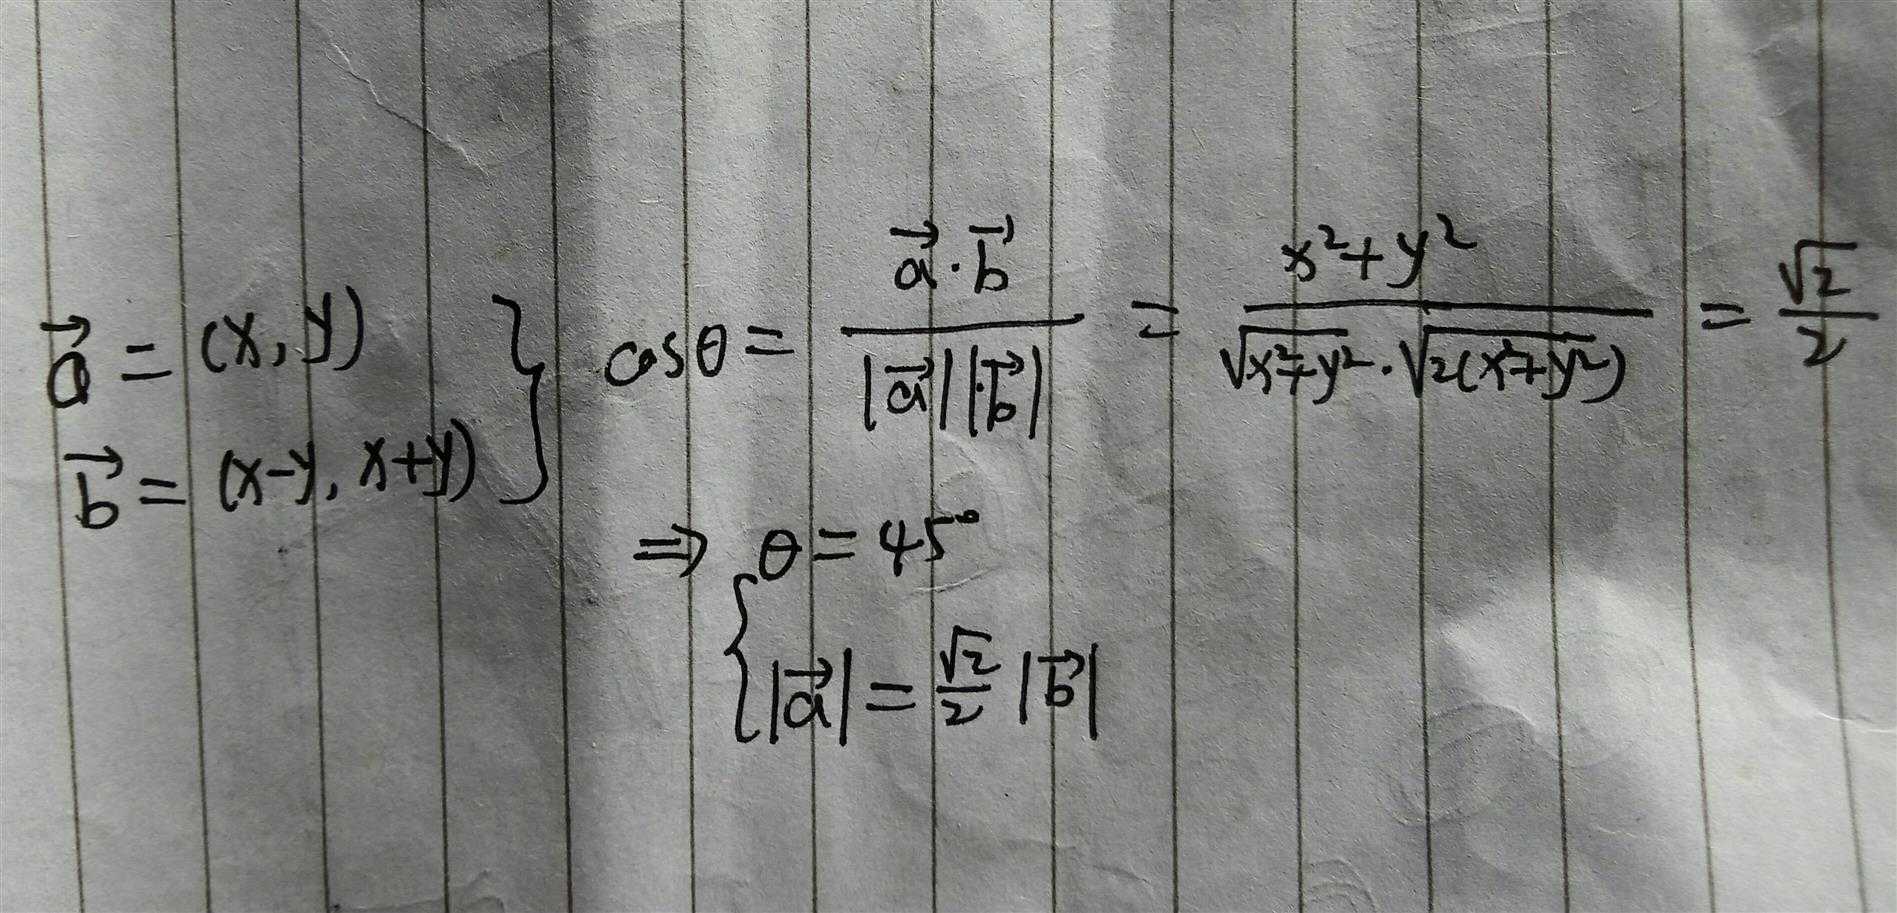 $\vec{a} = (x, y)$
$\vec{b} = (x-y, x+y)$
$\cos\theta = \frac{\vec{a} \cdot \vec{b}}{|\vec{a}||\vec{b}|} = \frac{x^2+y^2}{\sqrt{x^2+y^2} \cdot \sqrt{2(x^2+y^2)}} = \frac{\sqrt{2}}{2}$
$\Rightarrow \theta = 45^\circ$
$|\vec{a}| = \frac{\sqrt{2}}{2} |\vec{b}|$